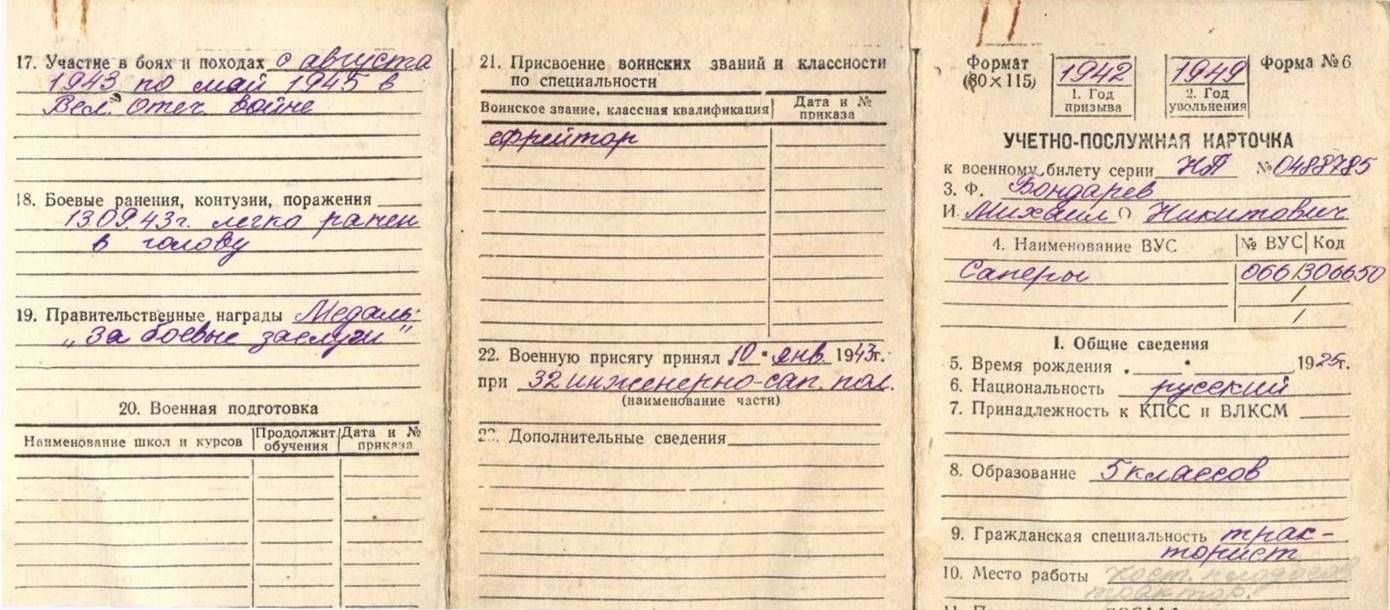 17. Участие в боях и походах с августа
1943 по май 1945 в
Вел. Отеч. войне
18. Боевые ранения, контузии, поражения
13.09.43г. легко ранен
в голову
19. Правительственные награды Медаль
„За боевые заслуги"
20. Военная подготовка
Наименование школ и курсов
Продолжит. обучения
Дата и № приказа
21. Присвоение воинских званий и классности
по специальности
Воинское звание, классная квалификация
Дата и № приказа
ефрейтор
22. Военную присягу принял 10 " янв. 1943г.
при 32 инженерно-сап. пол.
(наименование части)
23. Дополнительные сведения
Формат
(80×115)
1942
1. Год
призыва
1949
2. Год
увольнения
Форма №6
УЧЕТНО-ПОСЛУЖНАЯ КАРТОЧКА
к военному билету серии НП №0488785
3. Ф. Бондарев
И. Михаил О. Никитович
4. Наименование ВУС
№ ВУС
Код
Саперы
066130 6650
I. Общие сведения
5. Время рождения 1925г.
6. Национальность русский
7. Принадлежность к КПСС и ВЛКСМ
8. Образование 5 классов
9. Гражданская специальность трак-
торист
10. Место работы
трактор.